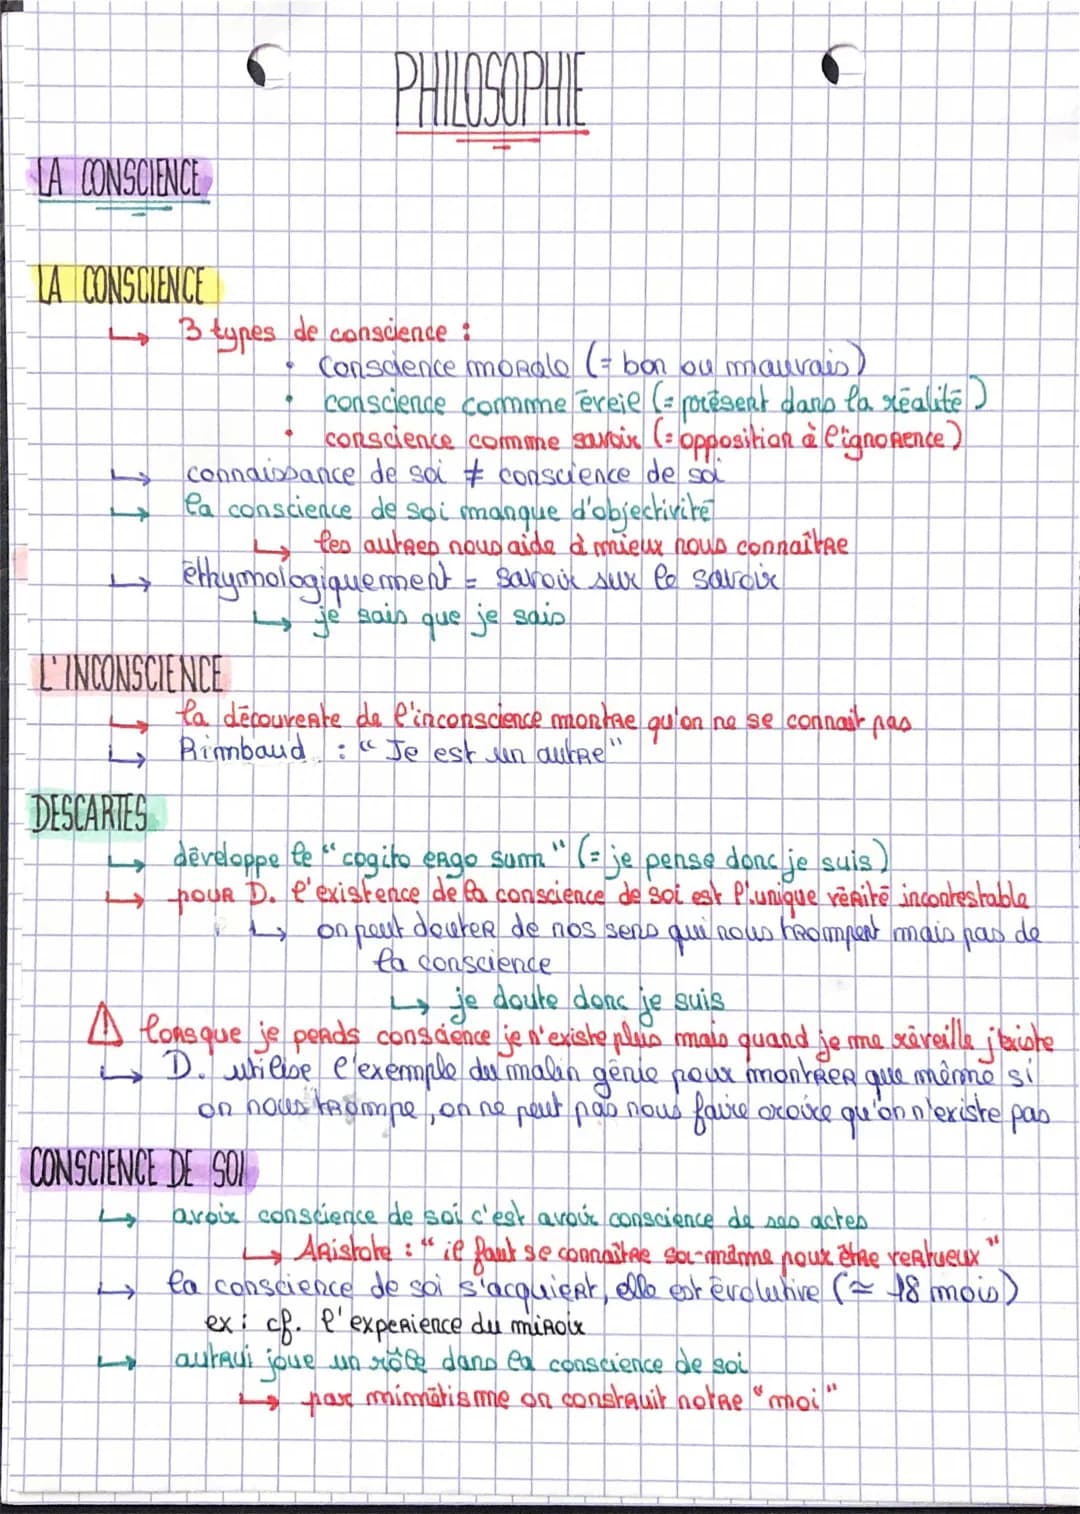 PHILOSOPHIE
LA CONSCIENCE
LA CONSCIENCE
↳ 3 types de conscience :
• conscience morale (= bon ou mauvais)
• conscience comme éveie (= présent dans la réalité)
• conscience comme savoir (= opposition à l'ignorence)
↳ connaissance de soi ≠ conscience de soi
↳ la conscience de soi manque d'objectivité
↳ les autres nous aide à mieux nous connaître
↳ éthymologiquement = savoir sur le savoir
↳ je sais que je sais
L'INCONSCIENCE
↳ la découverte de l'inconscience montre qu'on ne se connait pas
↳ Rimbaud : "Je est un autre"
DESCARTES
↳ développe le "cogito ergo sum" (= je pense donc je suis)
↳ pour D. l'existence de la conscience de soi est l'unique vérité incontestable
↳ on peut douter de nos sens qui nous trompent mais pas de
la conscience
↳ je doute donc je suis
⚠ lorsque je perds conscience je n'existe plus mais quand je me réveille j'existe
↳ D. utilise l'exemple du malin génie pour montrer que même si
on nous trompe, on ne peut pas nous faire croire qu'on n'existe pas
CONSCIENCE DE SOI
↳ avoir conscience de soi c'est avoir conscience de ses actes
↳ Aristote : "il faut se connaître soi-même pour être vertueux"
↳ la conscience de soi s'acquiert, elle est évolutive (≃ 18 mois)
ex : cf. l'experience du miroir
↳ autrui joue un rôle dans la conscience de soi
↳ par mimétisme on construit notre "moi"